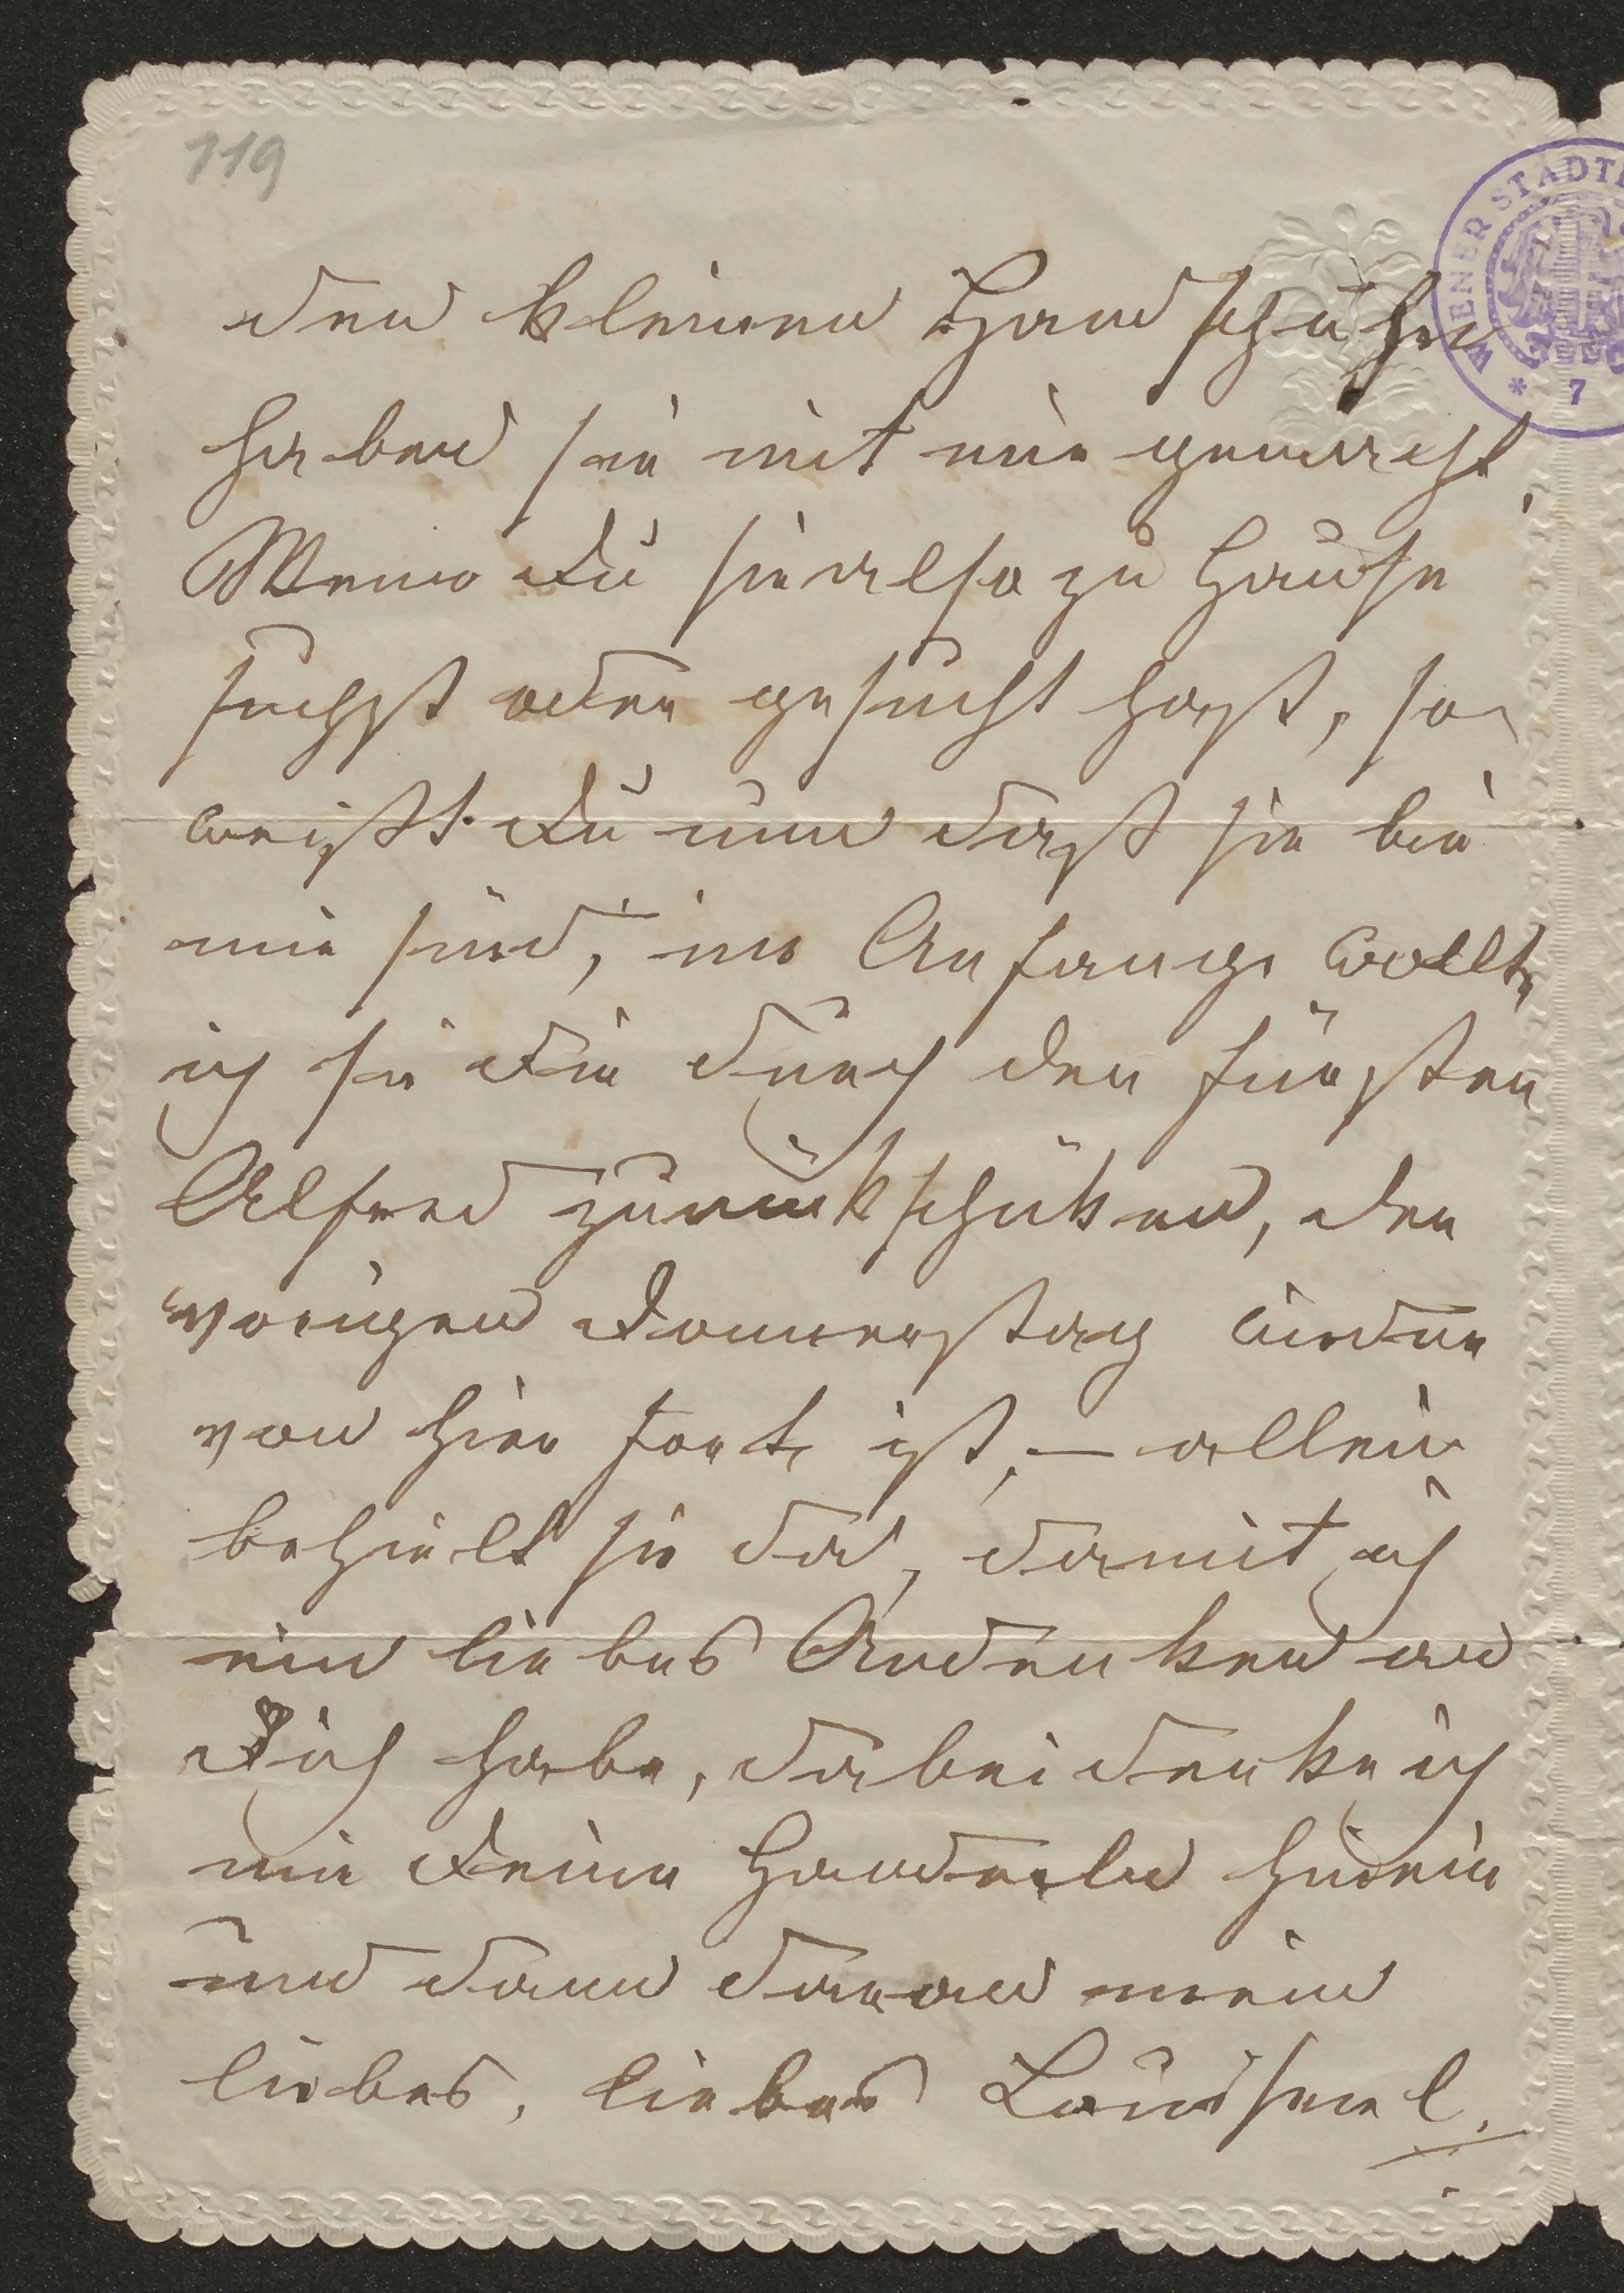 119
WIENER STADT
* 7
den kleinen Handschuhen
haben sie mit mir gemacht,
Wenn du sie also zu Hause
suchst oder gesucht hast, so
weißt du nun daß sie bei
mir sind, im Anfange wollte
ich sie dir durch den Fürsten
Alfred zurükschüken, der
vorigen Donnerstag wieder
von hier fort ist, — allein
behielt sie da, damit ich
ein liebes Andenken an
Dich habe, dabei denke ich
mir deine Handerln hinein
und dann daran mein
liebes, liebes Louiserl.